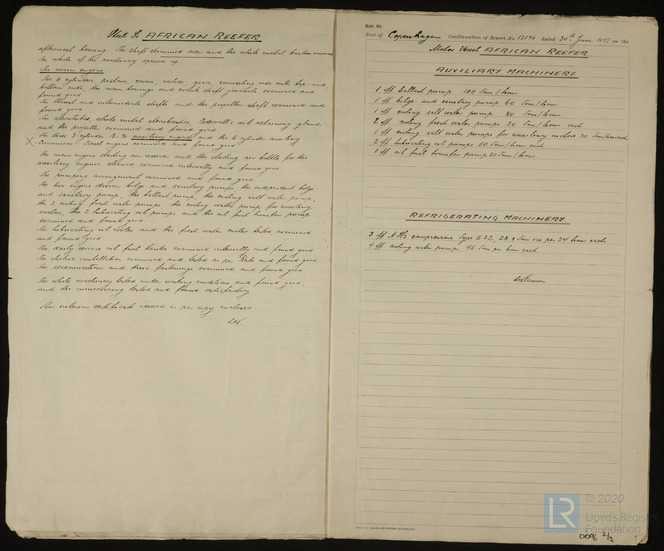 AFRICAN REEFER
afternoon bearing. The shaft examined over and the whole metal
The whole of the machinery opened up
The main engine
The 6 cylinders, pistons, covers, valves, gears, connecting rods with top and
bottom ends, the main bearings and crank shaft journals examined and
found good
The thrust and intermediate shafts and the propeller shaft examined and
found good
The sterntubes, white metal sternbushes, Cedervall's oil retaining gland
and the propeller examined and found good
The three 3 cylinder auxiliary engines and the 2 cylinder auxiliary
Diesel engine examined and found good
The main engine starting air receivers and the starting air bottle for the
auxiliary engines examined internally and found good
The pumping arrangement examined and found good
The main engine driven bilge and sanitary pumps, the independent bilge
and sanitary pump, the ballast pump, the cooling salt water pump,
the 2 cooling fresh water pumps, the cooling water pump for auxiliary
motors, the 2 lubricating oil pumps and the oil fuel transfer pump
examined and found good
The lubricating oil coolers and the fresh water cooler tested examined
and found good
The daily service oil fuel tanks examined internally and found good
The electric installation examined and tested as per Rule and found good
The seaconnections and their fastenings examined and found good
The whole machinery tested under working conditions and found good,
and the manoeuvring tested and found satisfactory
An interim certificate issued as per copy enclosed
Rpt. 9a.
Port of Copenhagen Continuation of Report No. 12196 dated 30th June 1947 on the
Motor Vessel AFRICAN REEFER
AUXILIARY MACHINERY
1 off ballast pump 100 Tons/hour
1 off bilge and sanitary pump 60 Tons/hour
1 off cooling salt water pump 80 Tons/hour
2 off cooling fresh water pumps 80 Tons/hour each
1 off cooling salt water pump for auxiliary motors 30 Tons/hour
2 off lubricating oil pumps 50 Tons/hour each
1 off oil fuel transfer pump 20 Tons/hour
REFRIGERATING MACHINERY
3 off compressors Type per 24 hours each
4 off cooling water pumps 45 Tons per hour each
© 2020
LR
Lloyd's Register
Foundation
0096 2/2